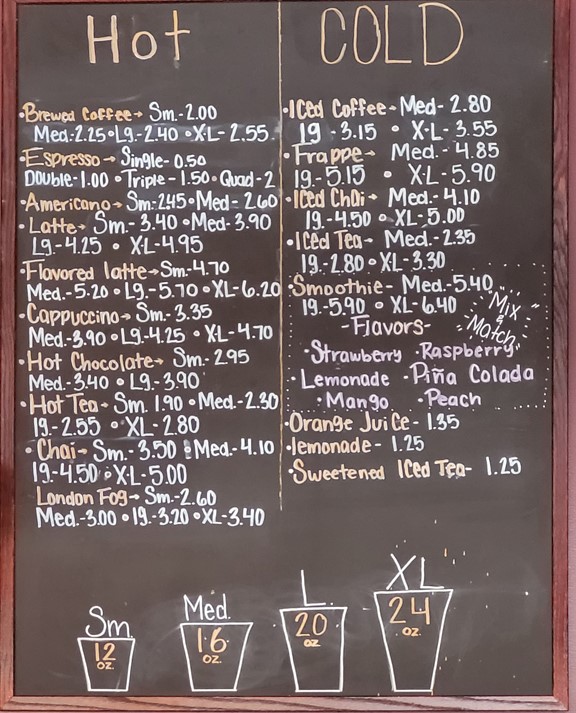 Hot
·Brewed Coffee→ Sm.-2.00
Med.-2.25•Lg.-2.40 •X-L- 2.55
·Espresso→ Single- 0.50
Double-1.00 •Triple-1.50•Quad-2
·Americano→ Sm-2.45•Med- 2.60
·Latte→ Sm.- 3.40 •Med-3.90
Lg-4.25 • X-L-4.95
·Flavored latte→Sm.-4.70
Med.-5.20•Lg.-5.70 •XL-6.20
·Cappuccino→ Sm.-3.35
Med-3.90•Lg.-4.25 • X-L-4.70
·Hot Chocolate→ Sm.-2.95
Med.-3.40 • Lg.-3.90
·Hot Tea→ Sm. 1.90 •Med.-2.30
19.-2.55 • XL-2.80
·Chai→ Sm.-3.50 •Med.-4.10
19.-4.50 •X-L-5.00
London Fog→ Sm.-2.60
Med.-3.00 •19.-3.20 •XL-3.40
COLD
·Iced Coffee→ Med- 2.80
19 -3.15 • X-L-3.55
·Frappe→ Med.-4.85
19.-5.15 • X-L-5.90
·Iced Chai→ Med.-4.10
19.-4.50 • XL-5.00
·Iced Tea→ Med-2.35
19.-2.80 • XL-3.30
·Smoothie- Med.-5.40
19.-5.90 • XL-6.40
Mix
&
Match
-Flavors-
·Strawberry ·Raspberry
·Lemonade ·Piña Colada
·Mango ·Peach
·Orange Juice- 1.35
·lemonade- 1.25
·Sweetened Iced Tea- 1.25
Sm. Med. L XL
12 oz. 16 oz. 20 oz 24 oz.